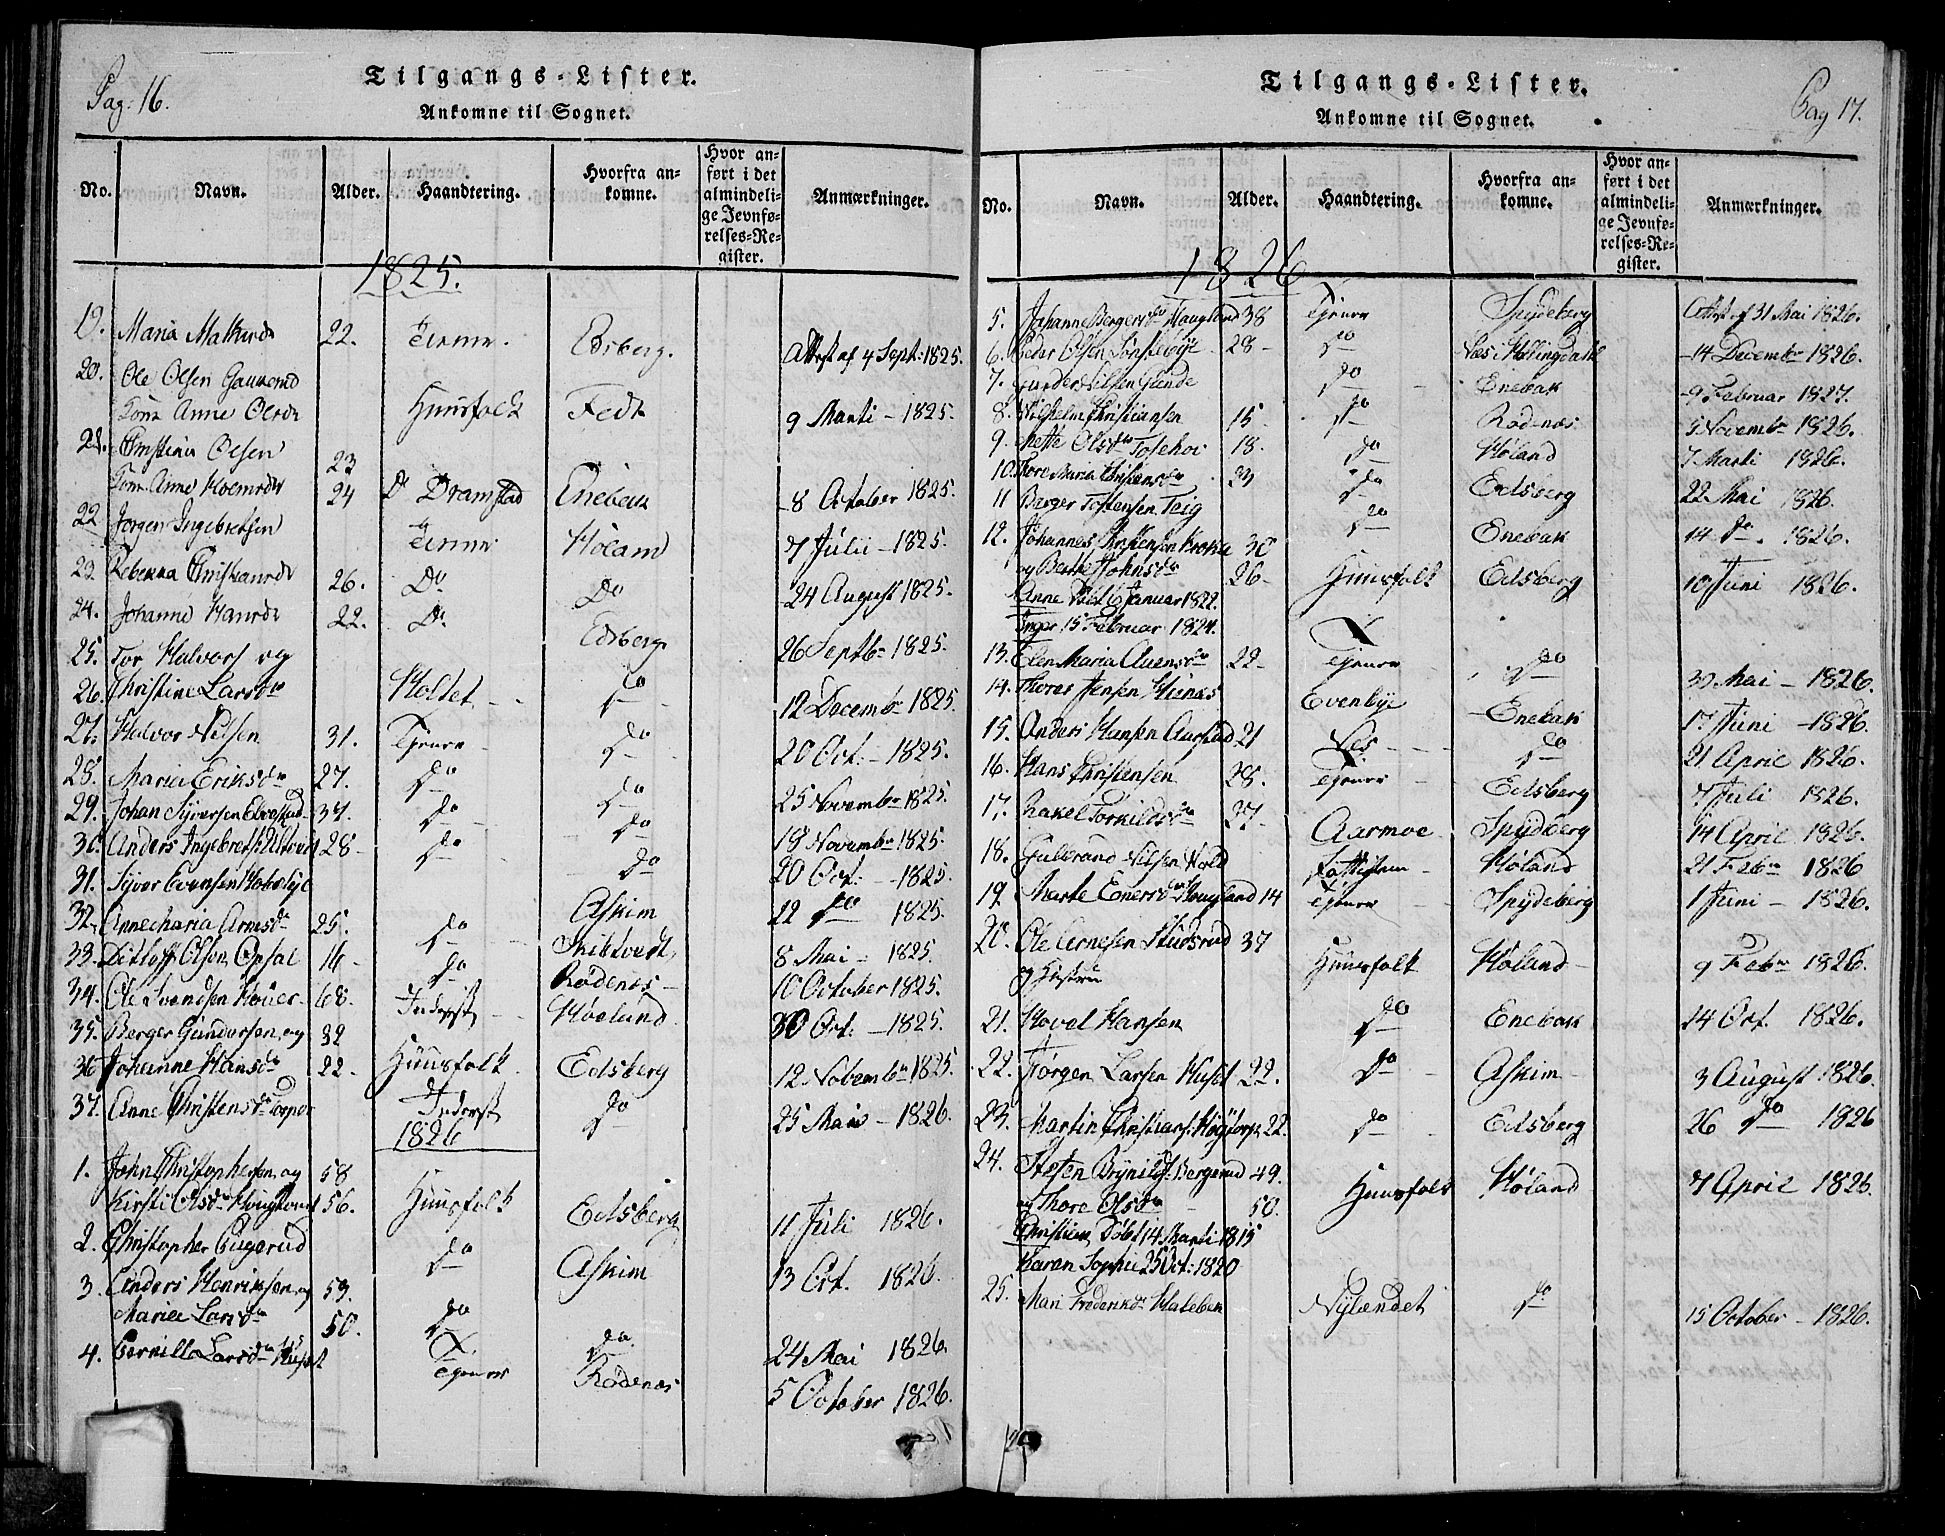 Pag: 16.
Tilgangs-Lister.
Ankomne til Sognet.
No. Navn. Alder. Haandtering. Hvorfra ankomne. Hvor anført i det almindelige Jevnførelses-Register. Anmærkninger.
1825.
19. Maria 22. Edsberg. Attest af 4 Sept: 1825.
20. Ole Olsen
Anne Huusfolk 9 Marti - 1825.
21. Christian Olsen 23
Anne 24 Do Dramstad Enebak 8 October 1825.
22 Jørgen Ingebretsen 7 Julii - 1825.
23 Rebekka 26. Do Do 24 August 1825.
24. Johanne 22. Do Edsberg 26 Septbr 1825.
25. Tor Halvors og
26. Christine Larsdr Holtet do 12 Decembr 1825.
27. Halvor Nilsen 31. Tjener do 20 Oct: - 1825.
28. Maria Eriksdr 27. do do 25 Novembr 1825.
29. Johan Syversen 34. do do 19 Novembr 1825.
30. Anders Ingebrets: 28 - do do 20 Oct: - 1825.
31. Syver Evensen Askim 22 do 1825.
32. Anne Maria Arnesdr 25. do Skibtvedt 8 Mai - 1825.
33. Ditloff Olsen Opsal 16 - do Rødenes 10 October 1825.
34. Ole Svendsen 68. Inderst Høelund 30 Oct: - 1825.
35. Berger Gundersen og 32
36 Johanne Hansdr 22. Huusfolk Edsberg 12 Novembr 1825.
37. Anne Christensdr Inderst do 25 Mai - 1826.
1826
1. John Christophersen og 58
Kirsti Olsdr Haugland 56. Huusfolk Edsberg 11 Juli 1826.
2. Christopher do Askim 13 Oct. 1826.
3. Anders Henriksen og 59.
Marie Larsdr 50. do do 24 Mai 1826.
4. Pernille Larsdr Tjener Rødenæs 5 October 1826.
Pag 17.
Tilgangs-Lister.
Ankomne til Sognet.
No. Navn. Alder. Haandtering. Hvorfra ankomne. Hvor anført i det almindelige Jevnførelses-Register. Anmærkninger.
1826
5. Johanne Bergersdr Haugland 38 Tjener Spydeberg Attest af 31 Mai 1826.
6. Peder Olsen 28 - do Næs i Hallingdahl 14 Decembr 1826.
7. Gunder Nilsen do Enebak 9 Februar 1827.
8. Wilhelm Christiansen 15 do Rødenæs 5 Novembr 1826.
9. Mette Olsdr 18. do Høland 7 Marti 1826.
10. Thore Maria Christensdr 23 do Edsberg 22 Mai 1826.
11 Berger Tostensen Teig do Enebak 14 do. 1826.
12. Johannes Christensen 30
og Berthe Johnsdr 26 - Huusfolk Edsberg 10 Juni 1826.
Anne født 6 Januar 1822.
Inger 15 Februar 1824.
13. Elen Maria 22 - Tjener do 30 Mai - 1826.
14. Thores Jensen Evenbye Enebak 17 Juni - 1826.
15. Anders Hansen Aarstad 21 do 21 April 1826.
16. Hans Christensen 28. Tjener Edsberg 7 Juli 1826.
17. Rakel Torkildsdr 27 - Aarmoe Spydeberg 14 April 1826.
18. Gulbrand Nilsen Høland 21 Febr 1826
19. Marte Haugland 14 Tjener Spydeberg 1 Juni - 1826.
20. Ole Arnesen 37
og Hustru Huusfolk Høland - 9 Febr 1826.
21. Hovel Hansen do Enebak 14 Oct. 1826.
22. Jørgen Larsen Huset 22. do Askim 3 August 1826.
23. Martin Christians: 22. do Edsberg 26 do 1826
24. Steten Brynilds: Bergerud 49.
og Thore Olsdr 50. Huusfolk Høland 7 April 1826.
Christian, Døbt 14 Marti 1815
Karen Sophie 25 Oct: 1820
25. Mari Frederiksdr Nylændet do 15 October - 1826.